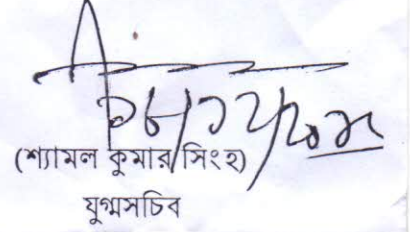 (শ্যামল কুমার সিংহ)
যুগ্মসচিব